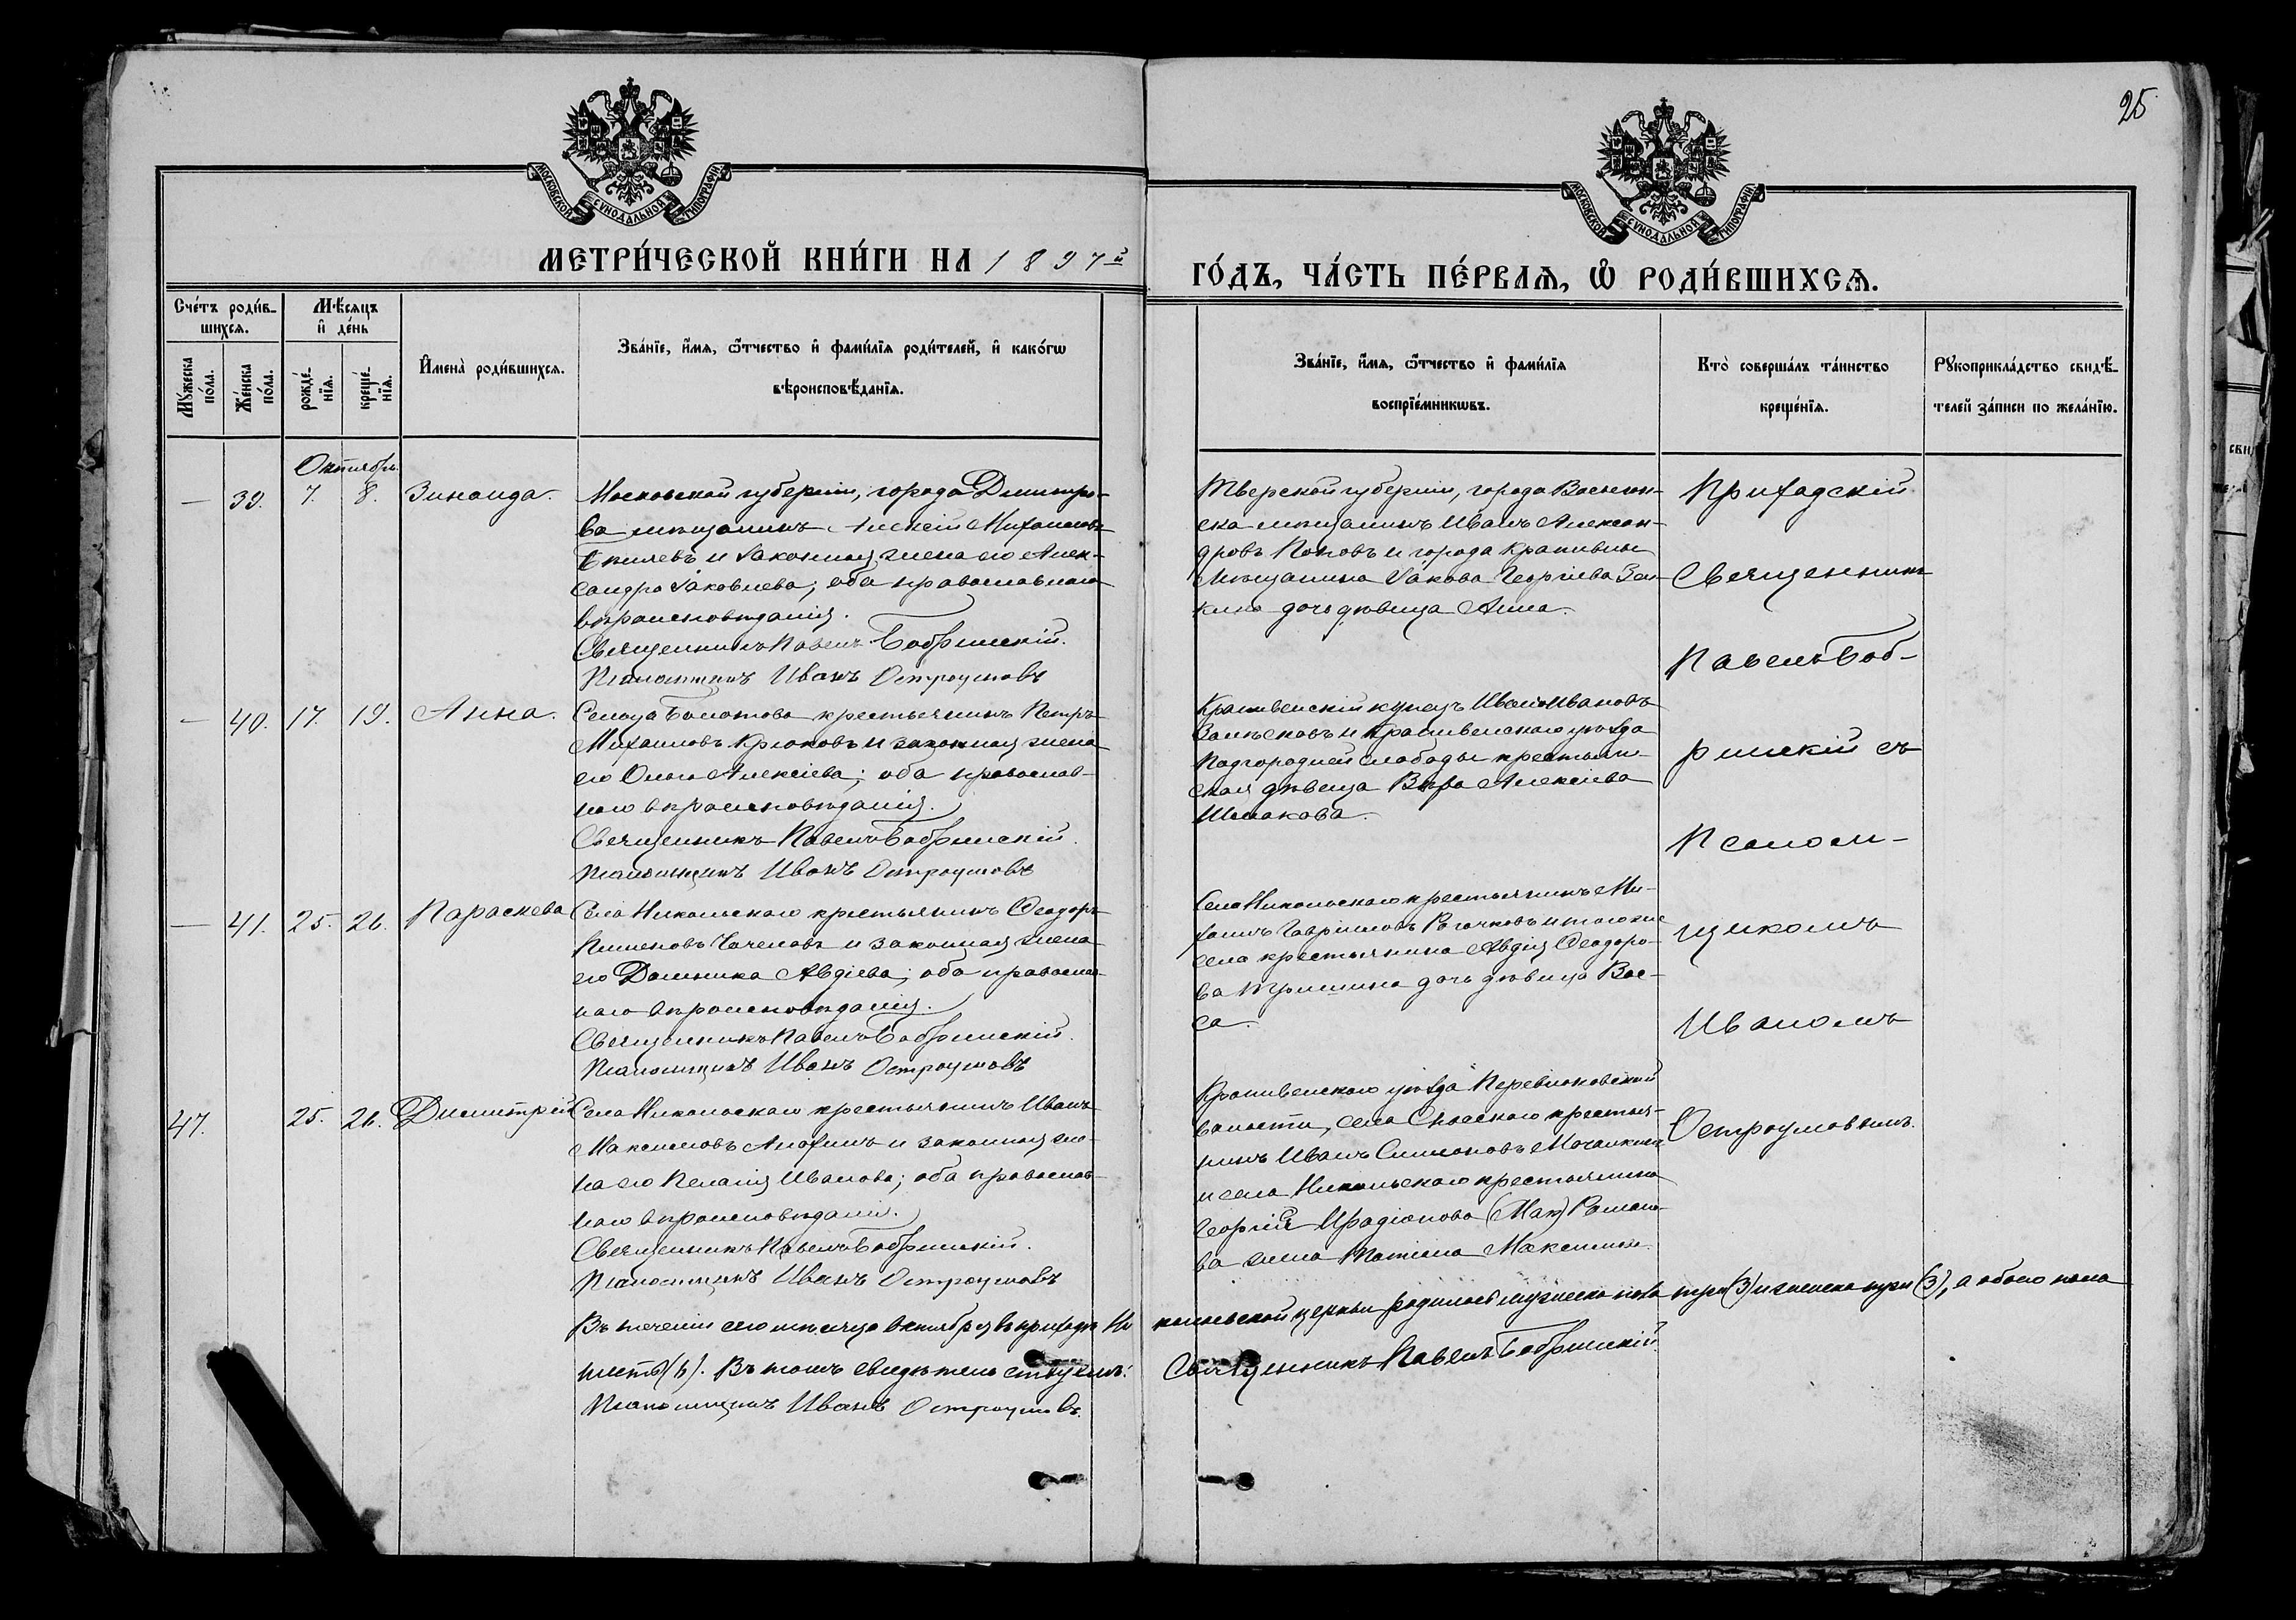 25
МОСКОВСКОЙ СѴНОДАЛЬНОЙ ТИПОГРАФІИ
МОСКОВСКОЙ СѴНОДАЛЬНОЙ ТИПОГРАФІИ
МЕТРИ́ЧЕСКОЙ КНИ́ГИ НА 1897й
ГО́ДЪ, ЧА́СТЬ ПЕ́РВАѦ, Ѡ҆ РОДИ́ВШИХСѦ.
Сче́тъ роди́в-
шихсѧ.
Мѣ́сѧцъ
и҆ де́нь
Мꙋ́жеска
по́ла.
Же́нска
по́ла.
рожде́-
нїѧ.
креще́-
нїѧ.
И҆мена̀ роди́вшихсѧ.
Зва́нїе, и҆́мѧ, ѻ҆́тчество и҆ фами́лїѧ роди́телей, и҆ како́гѡ
вѣроисповѣ́данїѧ.
Зва́нїе, и҆́мѧ, ѻ҆́тчество и҆ фами́лїѧ
воспрїе́мникѡвъ.
Кто̀ соверша́лъ та́инство
креще́нїѧ.
Рꙋкоприкла́дство свидѣ́-
телей за́писи по жела́нїю.
Октябрь.
— 39. 7. 8. Зинаида.
Московской губерніи, города Дмитро-
ва мѣщанинъ Алексій Михаиловъ
и законная жена его Алек-
сандра Іаковлева; оба православнаго
вѣроисповѣданія.
Священникъ Павелъ Бобринскій.
Псаломщикъ Иванъ Остроумовъ
Тверской губерніи, города
мѣщанинъ Иванъ Алексан-
дровъ Поповъ и города Крапивны
мѣщанина Іакова Георгіева
дочь дѣвица Анна.
— 40. 17. 19. Анна.
Сельца Болотова крестьянинъ Петръ
Михаиловъ Крюковъ и законная жена
его Ольга Алексіева; оба православ-
наго вѣроисповѣданія.
Священникъ Павелъ Бобринскій.
Псаломщикъ Иванъ Остроумовъ
Крапивенскій купецъ Иванъ Ивановъ
и Крапивенскаго уѣзда
Подгородней слободы крестьян-
ская дѣвица Вѣра Алексіева
Шмакова.
— 41. 25. 26. Параскева
Села Никольскаго крестьянинъ Ѳеодоръ
Пименовъ и законная жена
его Домника Авдіева; оба православ-
наго вѣроисповѣданія.
Священникъ Павелъ Бобринскій.
Псаломщикъ Иванъ Остроумовъ
Села Никольскаго крестьянинъ Ми-
хаилъ Гавриловъ и того же
села крестьянина Авдія Ѳеодоро-
ва Тришина дочь дѣвица Вас-
са.
47. 25. 26. Димитрій
Села Никольскаго крестьянинъ Иванъ
Максимовъ Анохинъ и законная же-
на его Пелагія Иванова; оба православ-
наго вѣроисповѣданія.
Священникъ Павелъ Бобринскій.
Псаломщикъ Иванъ Остроумовъ
Крапивенскаго уѣзда
волости, села Спасскаго крестья-
нинъ Иванъ Симеоновъ
и села Никольскаго крестьянина
Георгія Иродіонова Романо-
ва жена Татіана Максимова.
Приходскій
Священникъ
Павелъ Боб-
ринскій съ
Псалом-
щикомъ
Иваномъ
Остроумовымъ.
Въ теченіи сего мѣсяца октября въ приходѣ Ни кольской церкви родилось мужеска пола три (3) и женска три (3), а обоего пола
шесть (6). Въ томъ свидѣтельствуемъ: Священникъ Павелъ Бобринскій.
Псаломщикъ Иванъ Остроумовъ.